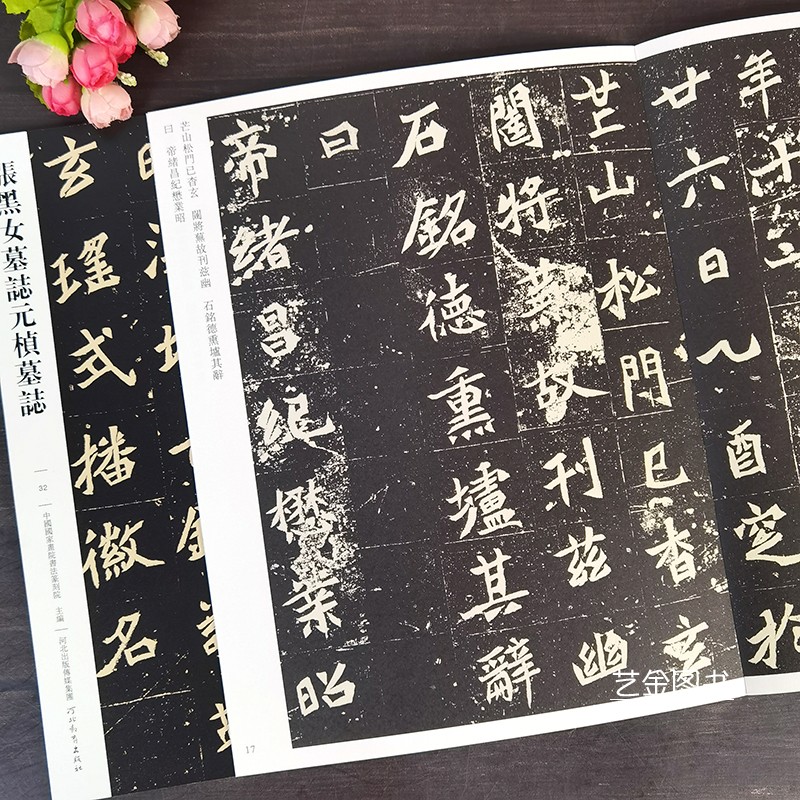 年十一
廿六日乙酉窆於
芒山松門已杳玄
闥將蕪故刊茲幽
石銘德熏壚其辭
曰
帝緒昌紀懋業昭
芒山松門已杳玄 闥將蕪故刊兹幽 石銘德熏壚其辭
曰 帝緒昌紀懋業昭
17
玄瑤式播徽名
張黑女墓誌元楨墓誌
32
中國國家畫院書法篆刻院 主編
河北出版傳媒集團
河北教育出版社
艺金图书